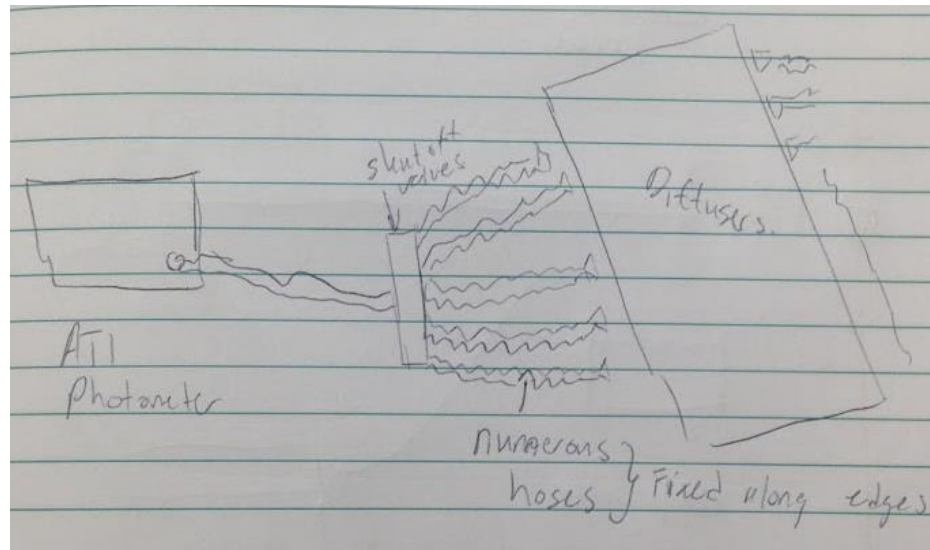 shutoff
valves
Diffusers.
ATI
Photometer
numerous
hoses } Fixed along edges